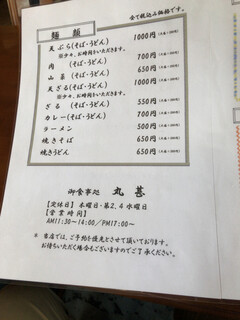 全て税込み価格です。
麺類
天ぷら(そば・うどん) 1000円
※少々、お時間をいただきます。
肉 (そば・うどん) 700円
山菜 (そば・うどん) 650円
天ざる(そば・うどん) 1000円
※少々、お時間をいただきます。
ざる (そば・うどん) 550円
カレー(そば・うどん) 700円
ラーメン 500円
焼きそば 650円
焼きうどん 650円
御食事処 丸甚
【定休日】 木曜日・第2,4水曜日
【営業時間】
AM11:30~14:00/PM17:00~
※ 当店では、ご予約を優先とさせて頂いております。
お待ちいただく場合もございますのでご了承ください。